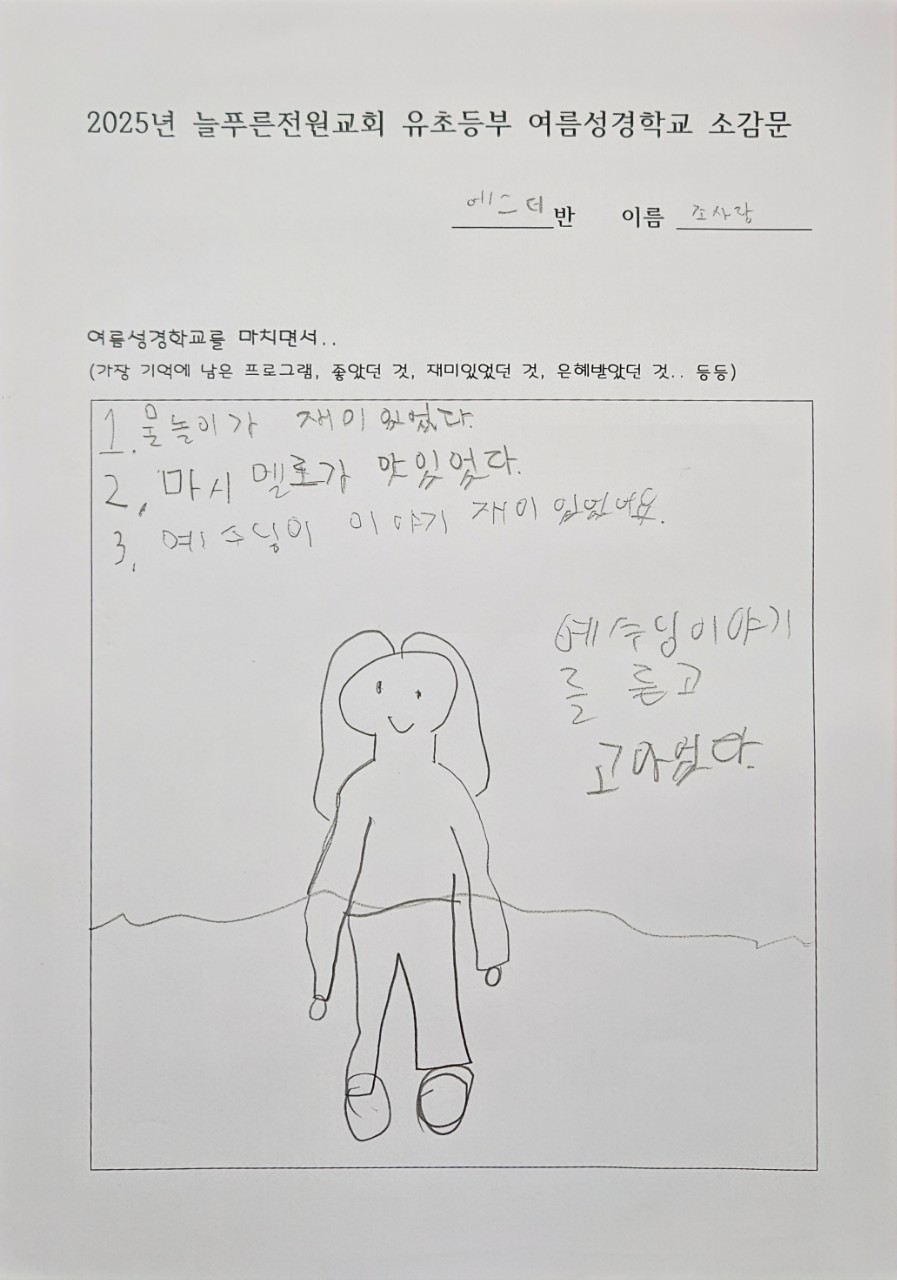 2025년 늘푸른전원교회 유초등부 여름성경학교 소감문
에스더 반 이름 조사랑
여름성경학교를 마치면서..
(가장 기억에 남은 프로그램, 좋았던 것, 재미있었던 것, 은혜받았던 것.. 등등)
1. 물놀이가 재미있었다.
2, 마시멜로가 맛있었다.
3, 예수님이 이야기 재이있었어요.
예수님이야기
를 듣고
고마웠다.